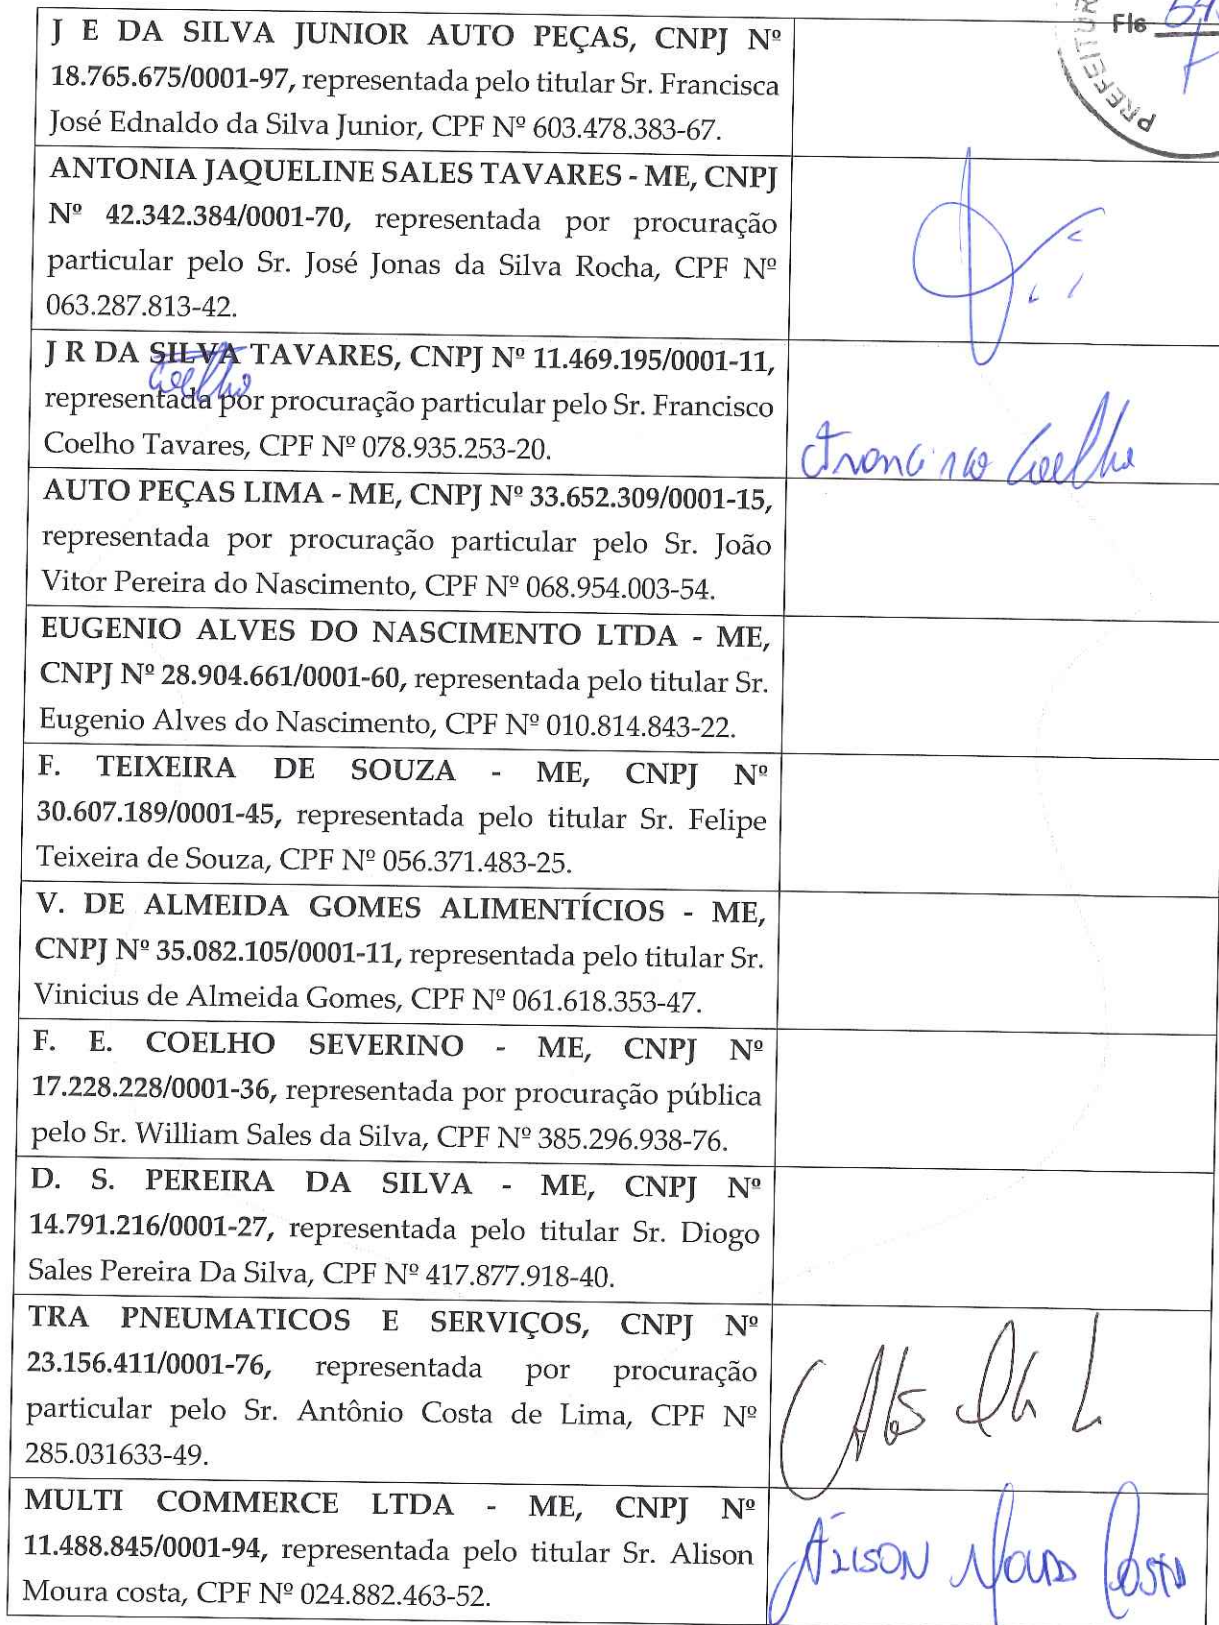 Fls
PREFEITUR
J E DA SILVA JUNIOR AUTO PEÇAS, CNPJ Nº
18.765.675/0001-97, representada pelo titular Sr. Francisca
José Ednaldo da Silva Junior, CPF Nº 603.478.383-67.
ANTONIA JAQUELINE SALES TAVARES - ME, CNPJ
Nº 42.342.384/0001-70, representada por procuração
particular pelo Sr. José Jonas da Silva Rocha, CPF Nº
063.287.813-42.
J R DA SILVA TAVARES, CNPJ Nº 11.469.195/0001-11,
Coelho
representada por procuração particular pelo Sr. Francisco
Coelho Tavares, CPF Nº 078.935.253-20.
Francisco Coelho
AUTO PEÇAS LIMA - ME, CNPJ Nº 33.652.309/0001-15,
representada por procuração particular pelo Sr. João
Vitor Pereira do Nascimento, CPF Nº 068.954.003-54.
EUGENIO ALVES DO NASCIMENTO LTDA - ME,
CNPJ Nº 28.904.661/0001-60, representada pelo titular Sr.
Eugenio Alves do Nascimento, CPF Nº 010.814.843-22.
F. TEIXEIRA DE SOUZA - ME, CNPJ Nº
30.607.189/0001-45, representada pelo titular Sr. Felipe
Teixeira de Souza, CPF Nº 056.371.483-25.
V. DE ALMEIDA GOMES ALIMENTÍCIOS - ME,
CNPJ Nº 35.082.105/0001-11, representada pelo titular Sr.
Vinicius de Almeida Gomes, CPF Nº 061.618.353-47.
F. E. COELHO SEVERINO - ME, CNPJ Nº
17.228.228/0001-36, representada por procuração pública
pelo Sr. William Sales da Silva, CPF Nº 385.296.938-76.
D. S. PEREIRA DA SILVA - ME, CNPJ Nº
14.791.216/0001-27, representada pelo titular Sr. Diogo
Sales Pereira Da Silva, CPF Nº 417.877.918-40.
TRA PNEUMATICOS E SERVIÇOS, CNPJ Nº
23.156.411/0001-76, representada por procuração
particular pelo Sr. Antônio Costa de Lima, CPF Nº
285.031633-49.
MULTI COMMERCE LTDA - ME, CNPJ Nº
11.488.845/0001-94, representada pelo titular Sr. Alison
Moura costa, CPF Nº 024.882.463-52.
Álison Moura Costa